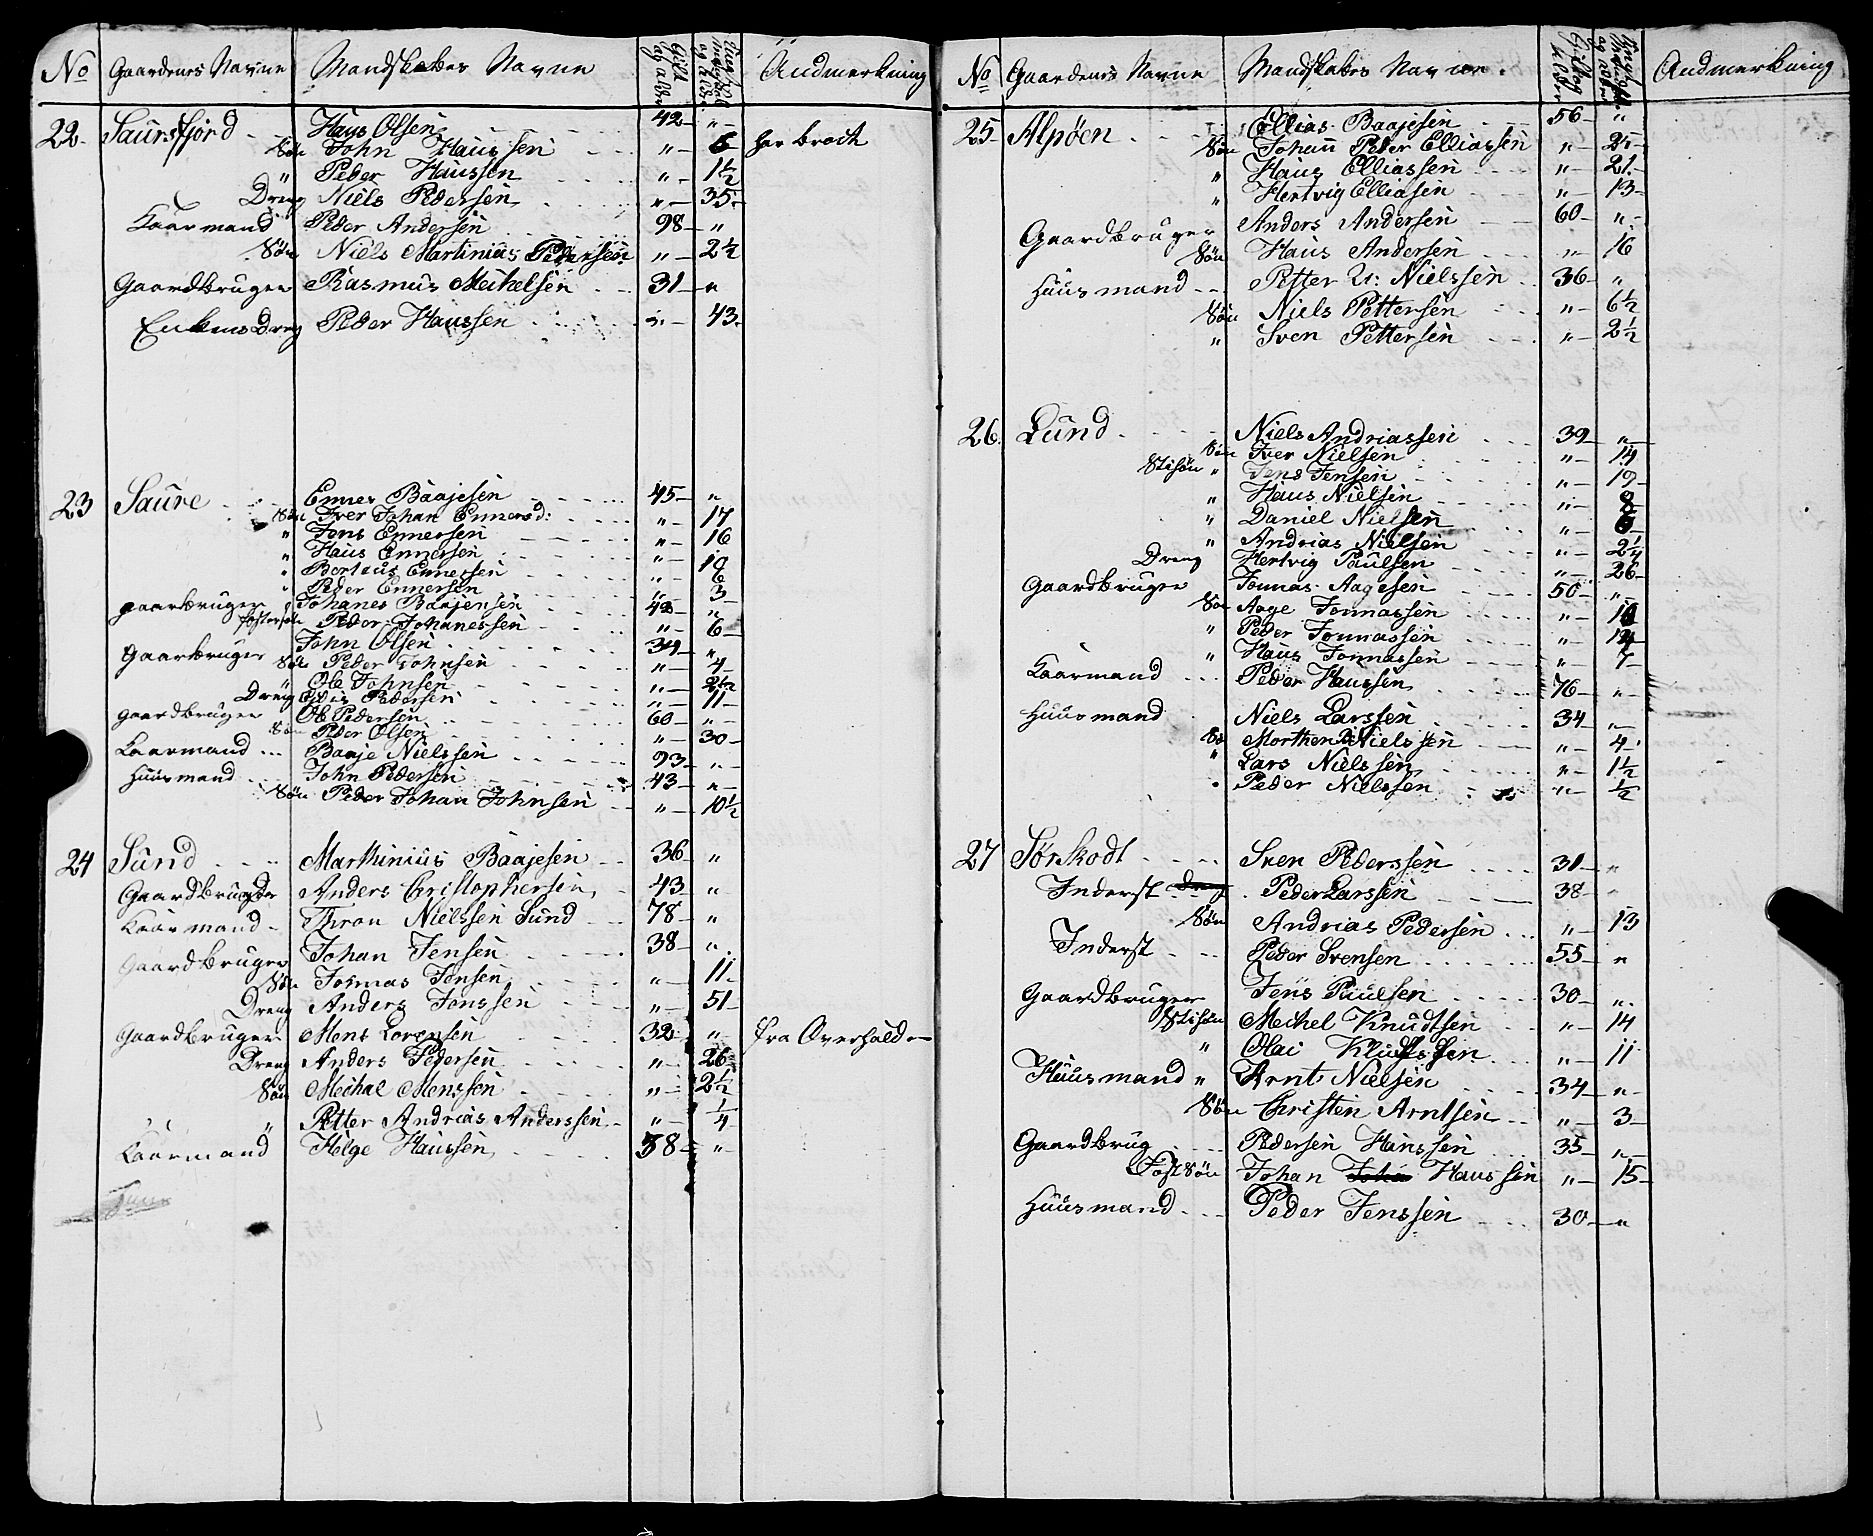 No Gaardenes Navne Mandskabes Navne Gift og alder Andmerkning
22 Saursfjord Hans Olsen 42 "
Søn John Hanssen " 6 har brock
" Peder Hanssen " 1½
Dreng Niels Pedersen " 35
Kaarmand Peder Andersen 98 "
Søn Niels Martinius Pedersen " 2½
Gaardbruger Rasmus Meihelsen 31 "
Enkens Dreng Peder Hanssen " 43
23 Saure Ennes Baajesen 45 "
Søn Iver Johan Ennersd: " 17
" Jens Ennersen " 16
" Hans Ennersen "
" Berteus Ennersen "
" Peder Ennersen " 3
gaarbruger Johanes Baajensen 42 "
fostersøn Peder Johanessen " 6
Gaarbruger John Olsen 34 "
Søn Peder Johnsen " 4
" Ole Johnsen " 2½
Dreng Pedersen " 11
gaardbruger Ole Pedersen 60 "
Søn Peder Olsen " 30
Kaarmand Baaje Nielssen 93 "
Huusmand John Pedersen 43 "
Søn Peder Johan Johnsen " 10½
24 Sund Marthinius Baajesen 36 "
Gaardbruger Anders Christophersen 43 "
Kaarmand Thron Nielssen Sund 78 "
Gaardbruger Johan Jensen 38 "
Søn Jonnas Jensen " 11
Dreng Anders Jonssen " 51
Gaardbruger Mens Lorensen 32 " fra Overhald
Dreng Anders Pedersen " 26
Søn Meihal Menssen " 2½
" Petter Andrias Anderssen " ¼
Kaarmand Helge Hanssen 58 "
No Gaardenes Navne Mandskabes Navne Andmerkning
25 Alsøen Ellias Baajesen 56 "
Søn Johan Peder Elliassen " 25
" Hans Elliassen " 21
" Hertvig Elliasen " 13
Gaardbruger Anders Andersen 60 "
Søn Hans Andersen " 16
Huusmand Petter Nielssen 36 "
Søn Niels Pettersen " 6½
" Sven Pettersen " 2½
26 Lund Niels Andriassen 39 "
Søn Iver Nielsen " 14
Stisøn " Jens Jensen " 19
" Hans Nielsen " 8
" Daniel Nielsen " 6
" Andrias Nielsen " 2¼
Dreng Hertvig Paulsen " 26
Gaardbruger Jonnas Aagesen 50 "
Søn Aage Jonnassen "
" Peder Jonnassen " 14
" Hans Jonnassen " 7
Kaarmand Peder Hanssen 76 "
Huusmand Niels Larssen 34 "
Sø Morthen Nielssen " 4
" Lars Nielssen " 1½
" Peder Nielssen " ½
27 Sørskodt Sven Pederssen 31 "
Inderst dreng Peder Larssen 38 "
Søn Andrias Pedersen " 13
Inderst Peder Svensen 55 "
Gaardbruger Jens Paulsen 30 "
Stisøn Meihel Knudtsen " 14
" Olai " 11
Huusmand " Arnt Nielsen 34 "
Søn Christen Arntsen " 3
Gaardbrug Pedersen Hanssen 35 "
Fostsøn Johan Joha Hanssen " 15
Huusmand Peder Jenssen 30 "